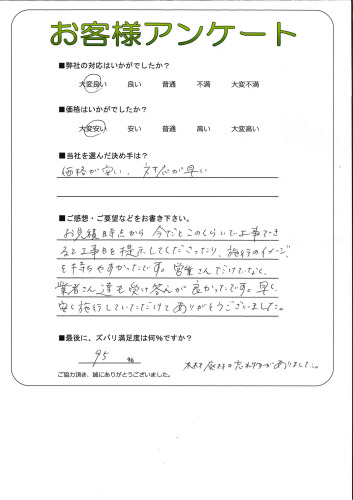 お客様アンケート
■弊社の対応はいかがでしたか？
大変良い 良い 普通 不満 大変不満
■価格はいかがでしたか？
大変安い 安い 普通 高い 大変高い
■当社を選んだ決め手は？
価格が安い、対応が早い
■ご感想・ご要望などをお書き下さい。
お見積時点から 今だとこのくらいで工事でき
ると工事日を提示してくださったり、施行のイメージ
を持ちやすかったです。営業さんだけでなく、
業者さん達も受け答えが良かったです。早く、
安く施行していただけてありがとうございました。
■最後に、ズバリ満足度は何%ですか？
95 %
木材 の忘れ物がありました。
ご協力頂き、誠にありがとうございました。